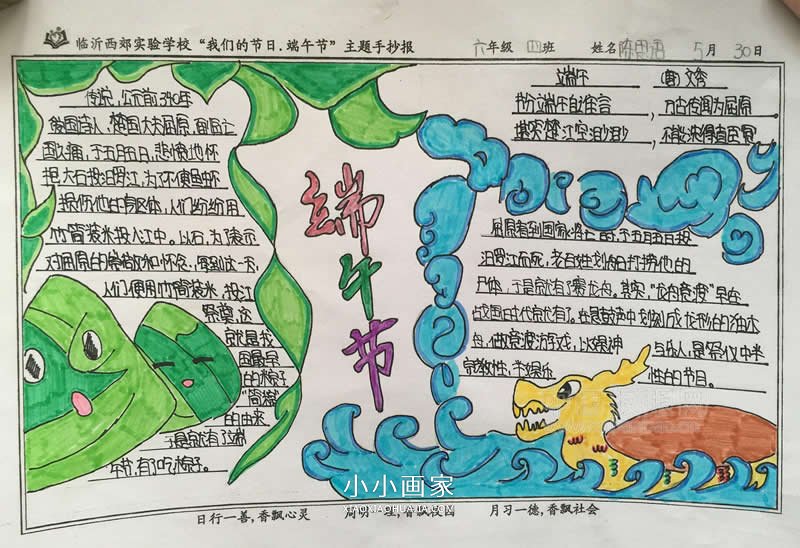 临沂西郊实验学校“我们的节日.端午节”主题手抄报 六年级 四班 姓名 陈思语 5月30日
传说,公元前340年
国大夫屈原
于五月五日,悲愤地怀
抱大石投汨罗江,为了不使鱼虾
损伤他的身体,人们纷纷用
竹筒装米投入江中。以后,为了表示
对屈原的崇敬和怀念,每到这一天,
人们便用竹筒装米,投江
祭奠,这
就是我
国最早
的粽子
“筒粽”
的由来
于是就有了端
午节,有了吃粽子。
端午节
端午 (唐)文秀
节分端午自谁言,万古传闻为屈原
堪笑楚江空渺渺,不能洗得直臣冤
于五月五日投
汨罗江而死,老百姓划船打捞他的
尸体,于是就有了赛龙舟。其实,“龙舟竞渡”早在
战国时代就有了。在急鼓声中划刻成龙形的独木
舟,做竞渡游戏,以娱神与乐人,是祭仪中半
宗教性,半娱乐性的节目。
小小画家
XIAOXIAOHUAJIA.COM
日行一善,香飘心灵 周明一理,香飘校园 月习一德,香飘社会